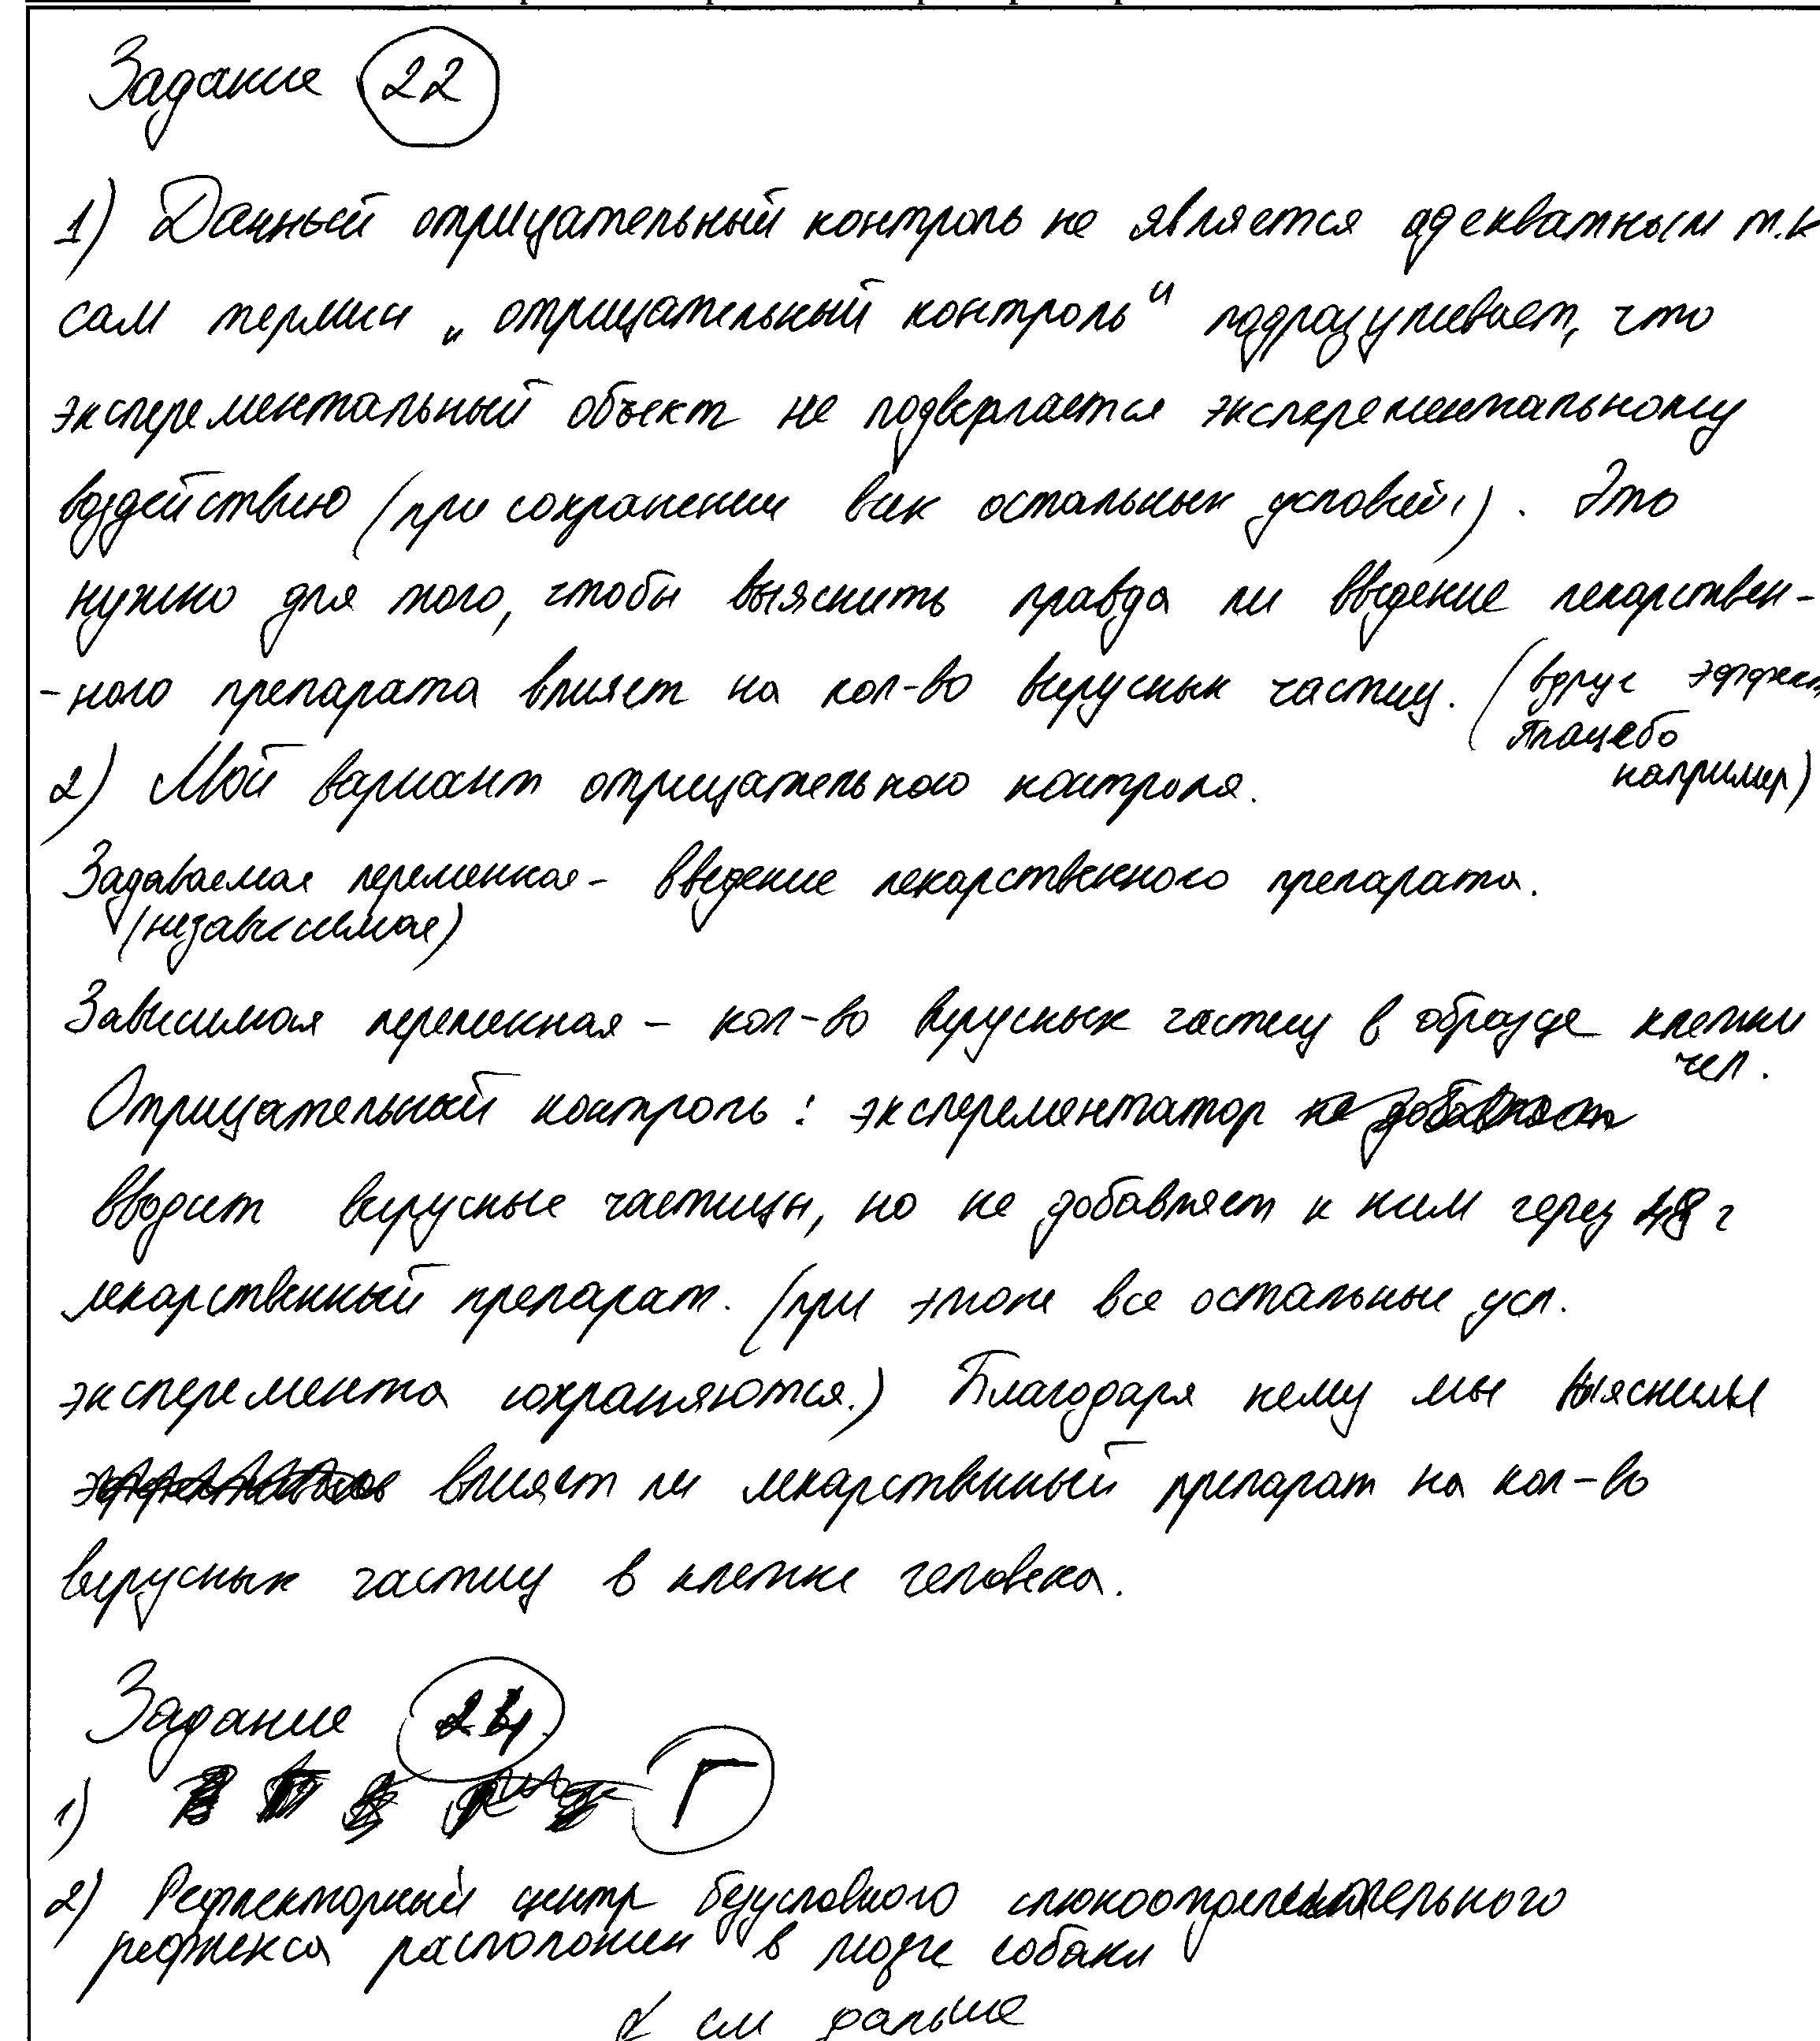 Задание 22
1) Данный отрицательный контроль не является адекватным т.к
сам термин „отрицательный контроль“ подразумевает, что
эксперементальный объект не подвергается эксперементальному
воздействию (при сохранении всех остальных условий). Это
нужно для того, чтобы выяснить правда ли введение лекарствен-
-ного препарата влияет на кол-во вирусных частиц. (вдруг эффект
плацебо
например)
2) Мой вариант отрицательного контроля.
Задаваемая переменная - введение лекарственного препарата.
(независимая)
Зависимая переменная - кол-во вирусных частиц в образце клетки
чел.
Отрицательный контроль: эксперементатор не добавляет
вводит вирусные частицы, но не добавляет к ним через 48 ч
лекарственный препарат. (при этом все остальные усл.
эксперемента сохраняются.) Благодаря чему мы выясним
влияет ли лекарственный препарат на кол-во
вирусных частиц в клетке человека.
Задание 24
1) Г
2) Рефлекторный центр безусловного слюноотделительного
рефлекса расположен в мозге собаки
см дальше